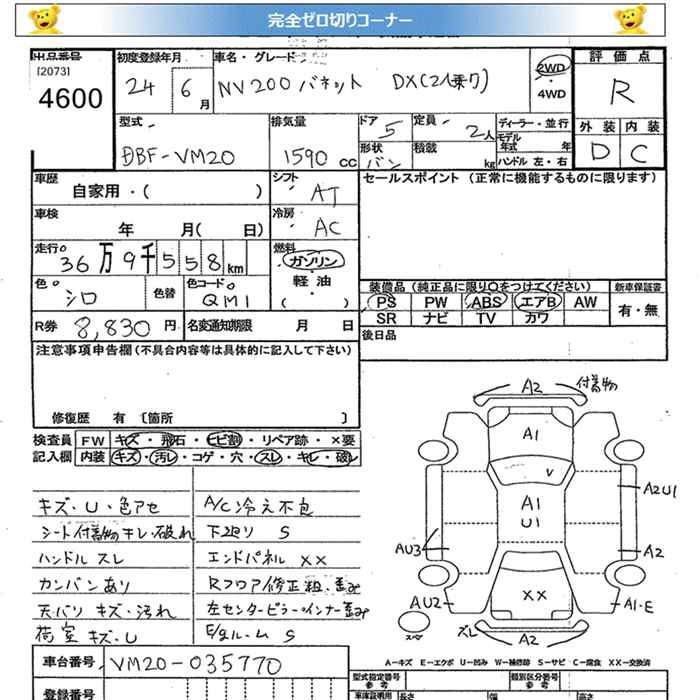 完全ゼロ切りコーナー
出品番号
[2073]
4600
初度登録年月
24 6月
車名・グレード
NV200バネット DX(2人乗り)
2WD
・4WD
評価点
R
外装 内装
D C
型式
DBF-VM20
排気量
1590 cc
ドア 5
形状 バン
定員 2人
積載 kg
ディーラー・並行
モデル年式 年
ハンドル 左・右
車歴
自家用・( )
シフト
AT
セールスポイント(正常に機能するものに限ります)
車検
年 月( 日)
冷房
AC
走行
36万9千558km
燃料
ガソリン
・
軽油
( )
色
シロ
色替
色コード
QM1
装備品(純正品に限り○をつけてください)
新車保証書
PS PW ABS エアB AW
SR ナビ TV カワ
有・無
R券 8,830 円
名変通知期限 月 日
後日品
注意事項申告欄(不具合内容等は具体的に記入して下さい)
修復歴 有 〔箇所 〕
検査員
記入欄
FW キズ・飛石・ヒビ割・リペア跡・×要
内装 キズ・汚レ・コゲ・穴・スレ・キレ・破レ
キズ・U・色アセ
シート付着物キレ・破れ
ハンドル スレ
カンバンあり
天バリ キズ・汚れ
荷室 キズ・U
A/C冷え不良
下廻り S
エンドパネル ××
Rフロア修正粗・歪み
左センターピラーインナー歪み
E/gルーム S
A2 付着物
A1
V
A1
U1
A2U1
AU3
A2
AU2
××
A1・E
スペア
ズレ
A2
A-キズ E-エクボ U-凹み W-補修跡 S-サビ C-腐食 XX-交換済
車台番号 VM20-035770
登録番号
型式指定番号
参考
類別区分番号
参考
車庫証明用
長さ
幅
高さ